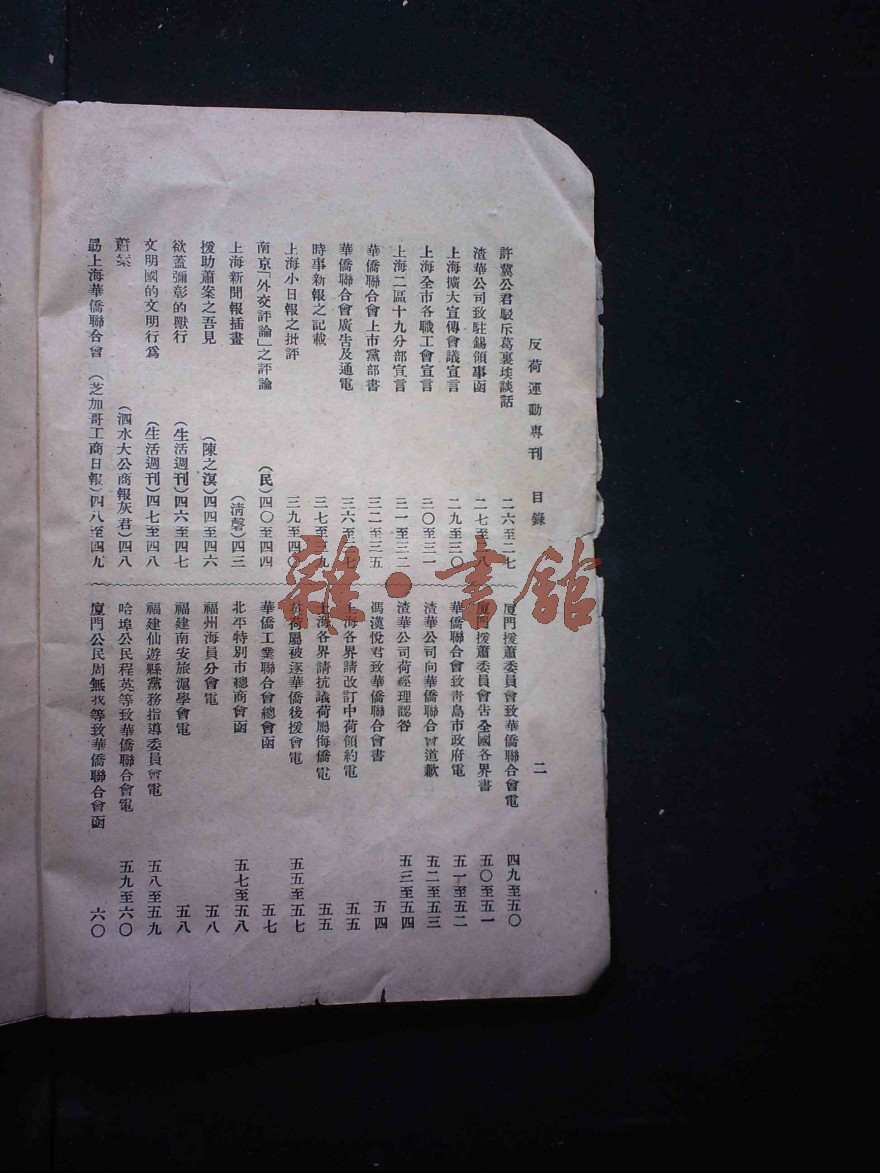 反荷運動專刊 目錄 二
許冀公君駁斥葛裏埃談話 二六至二七
渣華公司致駐錫領事函 二七至二八
上海擴大宣傳會議宣言 二九至三〇
上海全市各職工會宣言 三〇至三一
上海二區十九分部宣言 三一至三二
華僑聯合會上市黨部書 三二至三五
華僑聯合會廣告及通電 三六至三七
時事新報之記載 三七至三九
上海小日報之批評 三九至四〇
南京「外交評論」之評論 (民)四〇至四四
上海新聞報插畫 (清磬)四三
援助蕭案之吾見 (陳之溟)四四至四六
欲蓋彌彰的獸行 (生活週刊)四六至四七
文明國的文明行爲 (生活週刊)四七至四八
蕭案 (泗水大公商報灰君)四八
勗上海華僑聯合會 (芝加哥工商日報)四八至四九
廈門援蕭委員會致華僑聯合會電 四九至五〇
廈門援蕭委員會告全國各界書 五〇至五一
華僑聯合會致靑島市政府電 五一至五二
渣華公司向華僑聯合會道歉 五二至五三
渣華公司荷經理認咎 五三至五四
馮漢悅君致華僑聯合會書 五四
上海各界請改訂中荷領約電 五五
上海各界請抗議荷屬侮僑電 五五
荷屬被逐華僑後援會電 五五至五七
華僑工業聯合會總會函 五七
北平特別市總商會函 五七至五八
福州海員分會電 五八
福建南安旅滬學會電 五八
福建仙遊縣黨務指導委員會電 五八至五九
哈埠公民程英等致華僑聯合會電 五九至六〇
廈門公民周無我等致華僑聯合會函 六〇
雜·書館